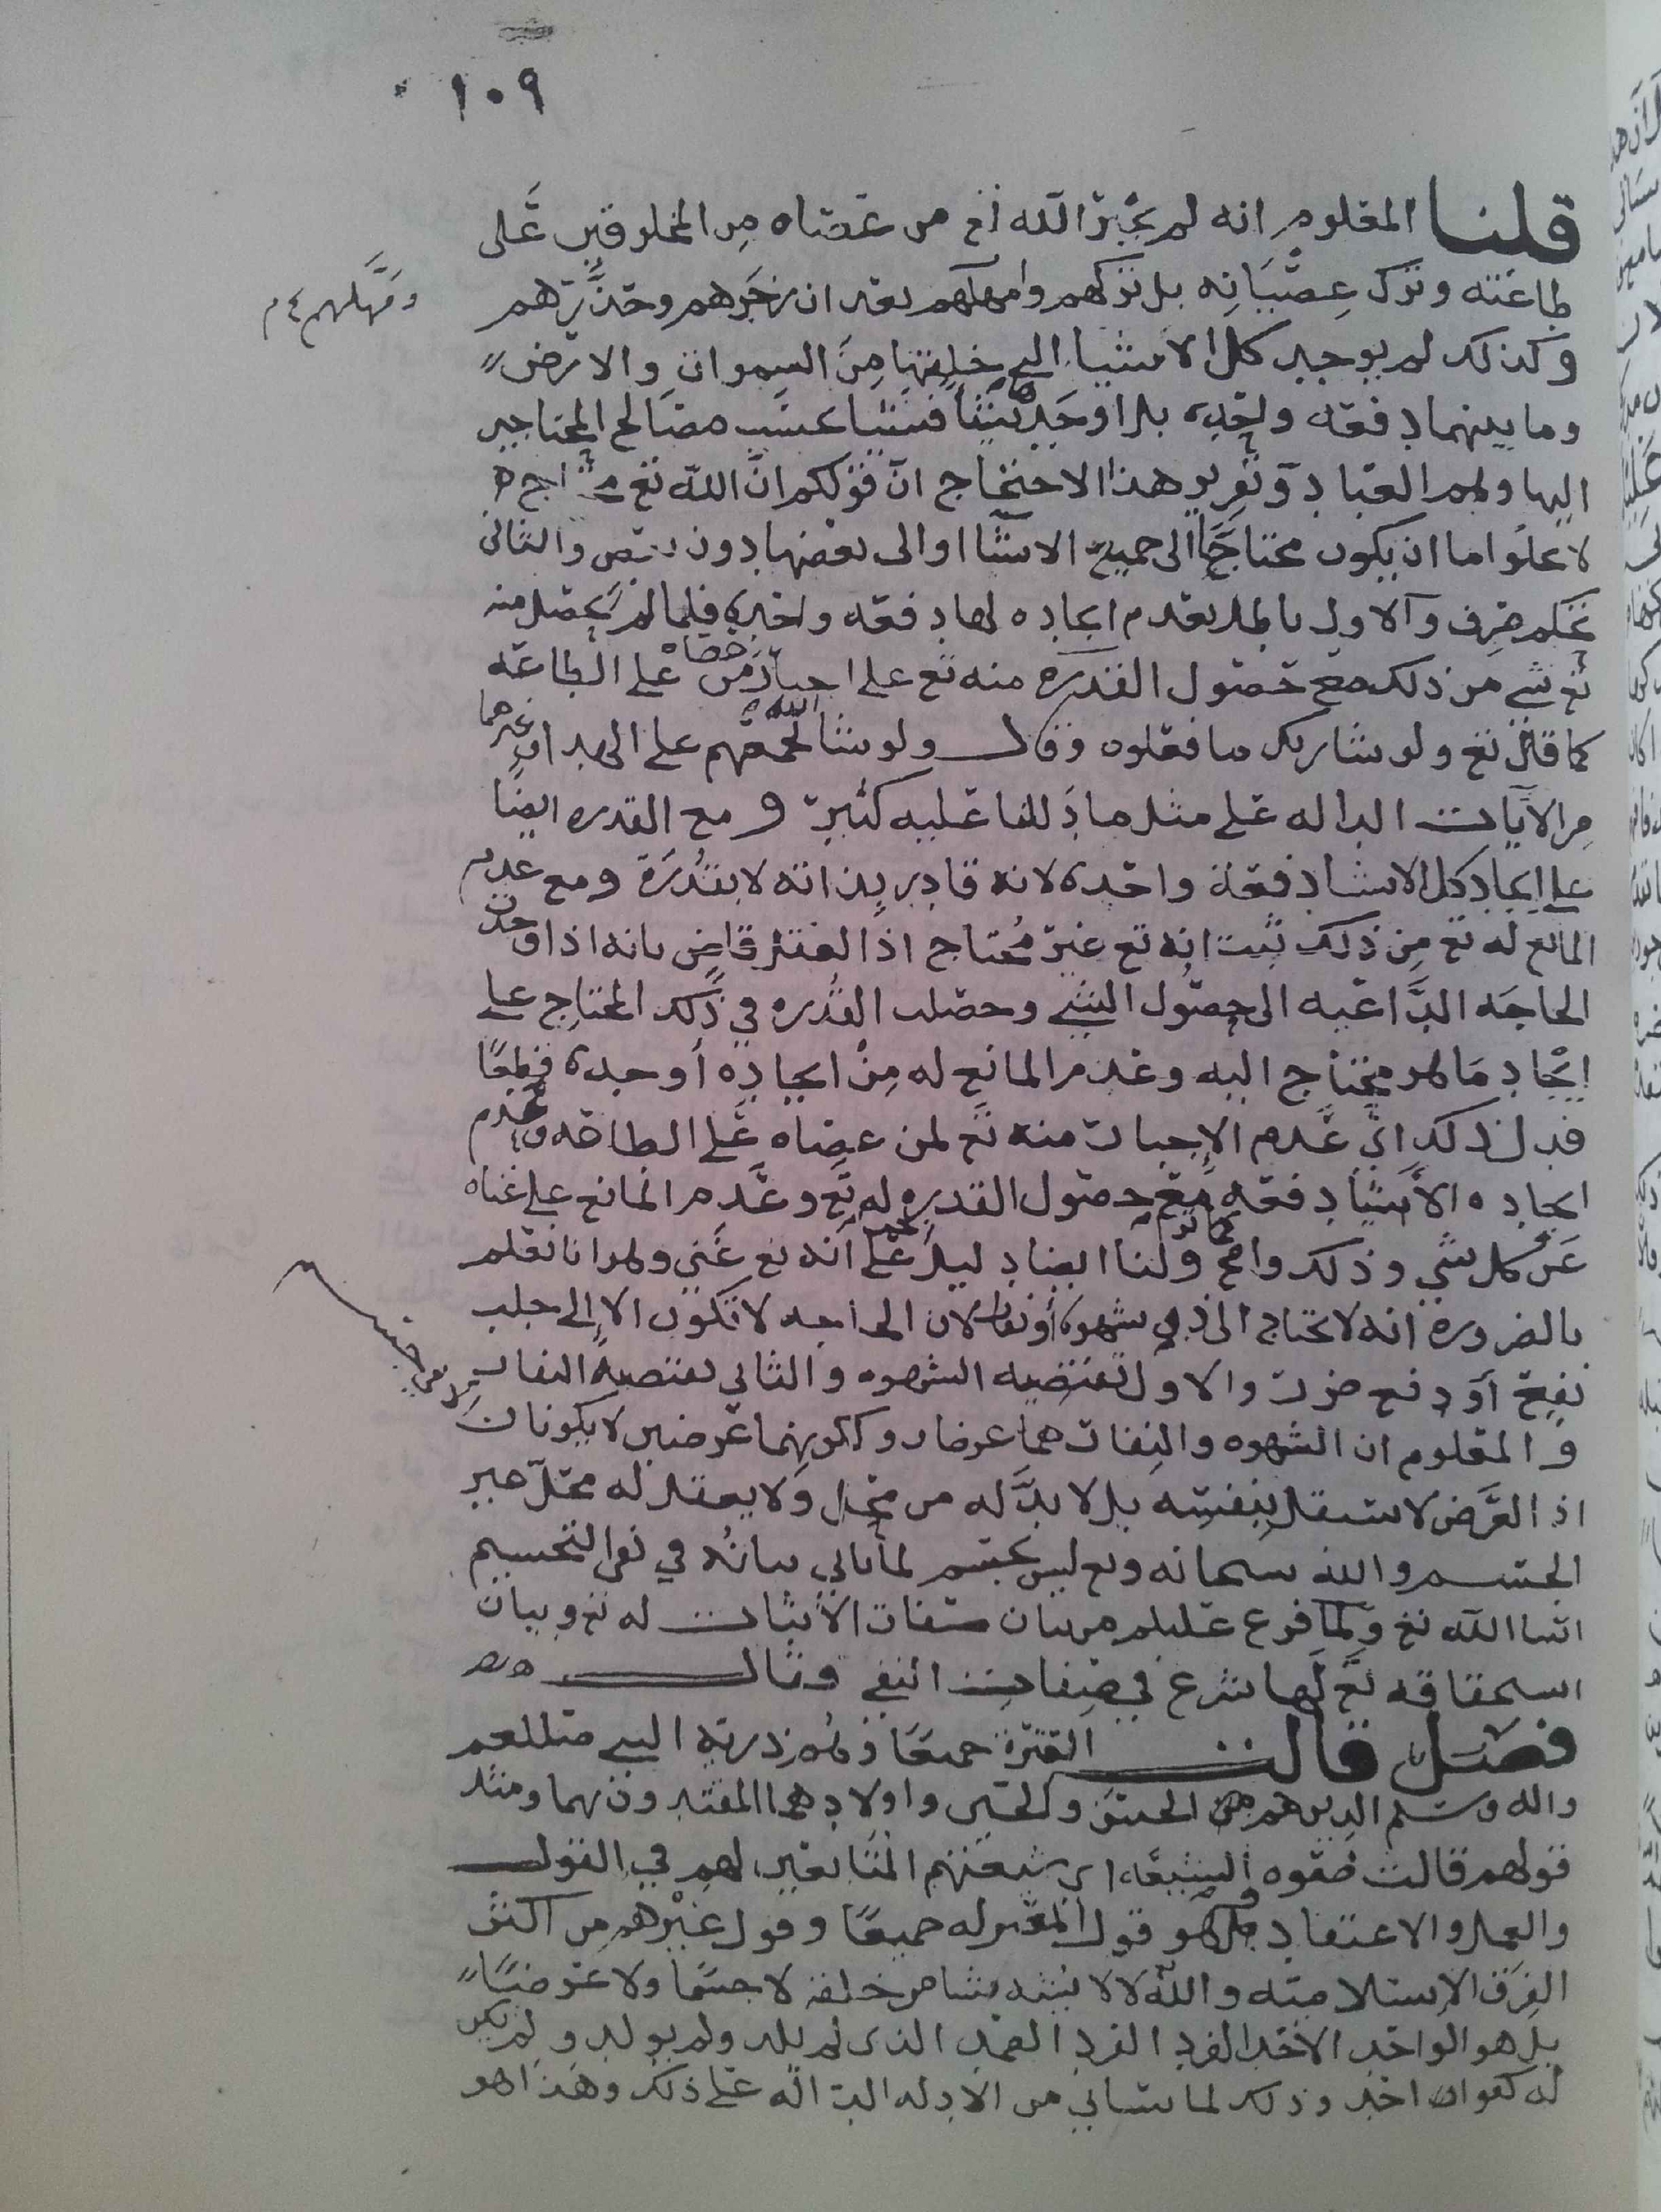 ١٠٩
قلنا المعلوم انه لم يجبر الله تع من عصاه من المخلوقين على
طاعته وترك عصيانه بل تركهم وامهلهم بعد ان زجرهم وحذرهم
ومهلهم
وكذلك لم يوجد كل الاشيا التي خلقها من السموات والارض
وما بينهما دفعه واحده بل اوجدها شيئا فشيئا بحسب مصالح المحتاجين
اليها وهم العباد وتقرير هذا الاحتجاج ان قولكم ان الله تع محتاج
لا يخلوا اما ان يكون محتاجا الى جميع الاشيا او الى بعضها دون بعض والثاني
تحكم صرف والاول باطل بعدم ايجاده لها دفعه واحده فلما لم يحصل منه
تع شي من ذلك مع حصول القدره منه تع على اجبار من عصاه على الطاعه
كما قال تع ولو شا ربك ما فعلوه وقال ولو شا الله لجمعهم على الهدا وغيرهما
من الآيات الداله على مثل ما دللنا عليه كثير و مع القدره ايضا
على ايجاد كل الاشيا دفعة واحده لانه قادر بذاته لا بقدرة ومع عدم
المانع له تع من ذلك ثبت انه تع غير محتاج اذ العقل قاض بانه اذا وجدت
الحاجه الداعيه الى حصول الشي وحصلت القدره في ذلك المحتاج على
ايجاد ما هو محتاج اليه وعدم المانع له من ايجاده أوجده قطعا
فدل ذلك اي عدم الاجبار منه تع لمن عصاه على الطاعه وعدم
ايجاده الاشيا دفعه مع حصول القدره له تع وعدم المانع على غناه
عن كل شي وذلك واضح ولنا ايضا دليل على انه تع غني وهو انا نعلم
بالضروره انه لا يحتاج الا ذي شهوة او نفار لان الحاجه لا تكون الا الى جلب
نفع أو دفع ضرر والاول تقتضيه الشهوه والثاني يقتضيه النفار
و المعلوم ان الشهوه والنفار هما عرضان وككونهما عرضين لا يكونان
اذ العرض لا يستقل بنفسه بل لا بد له من محل ولا يعقل له محل غير
الجسم والله سبحانه وتع ليس بجسم لما ياتي بيانه في نفي التجسيم
انشا الله تع ولما فرغ عليلم من بيان صفات الاثبات له تع وبيان
استحقاقه تع لها شرع في صفات النفي وقال
فصل قالت العترة جميعا وهم ذرية النبي صلى الله عليه
واله وسلم الذين هم من الحسن والحسين واولادهما المقتدون بهما ومثل
قولهم قالت صفوه الشيعه اي شيعتهم المتابعين لهم في القول
والعمل والاعتقاد وهو قول المعتزله جميعا وقول غيرهم من اكثر
الفرق الاسلاميه والله لا يشبه شيئا من خلقه لا جسما ولا عرضا
بل هو الواحد الاحد الفرد الصمد الذي لم يلد ولم يولد ولم يكن
له كفوا احد وذلك لما سياتي من الادله الداله على ذلك وهذا هو